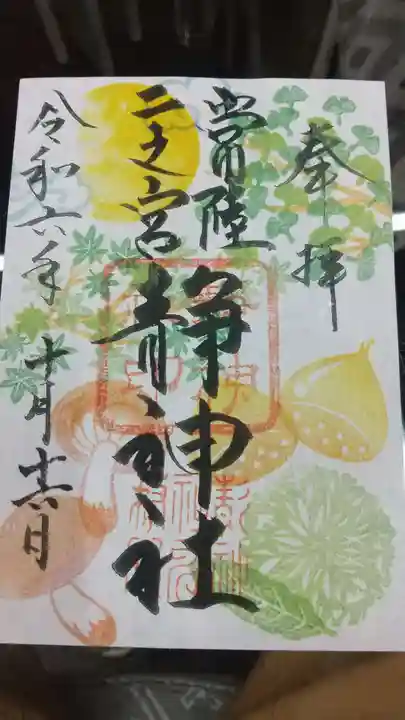 奉拝
常陸
二之宮
静神社
令和六年 十月十六日